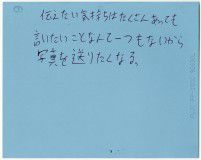 伝えたい気持ちはたくさんあっても
言いたいことなんて一つもないから
写真を送りたくなる。